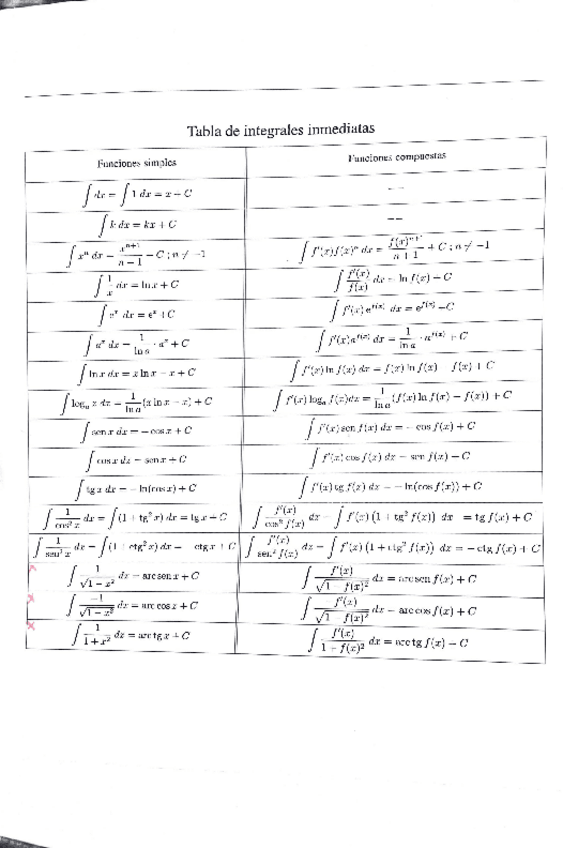 Tabla de integrales inmediatas
Funciones simples | Funciones compuestas
∫ dx = ∫ 1 dx = x + C | --
∫ k dx = kx + C | --
∫ xⁿ dx = xⁿ⁺¹/(n + 1) + C ; n ≠ −1 | ∫ f′(x)f(x)ⁿ dx = f(x)ⁿ⁺¹/(n + 1) + C ; n ≠ −1
∫ 1/x dx = ln x + C | ∫ f′(x)/f(x) dx = ln f(x) + C
∫ eˣ dx = eˣ + C | ∫ f′(x) e^f(x) dx = e^f(x) + C
∫ aˣ dx = 1/ln a · aˣ + C | ∫ f′(x)a^f(x) dx = 1/ln a · a^f(x) + C
∫ ln x dx = x ln x − x + C | ∫ f′(x) ln f(x) dx = f(x) ln f(x) − f(x) + C
∫ logₐ x dx = 1/ln a (x ln x − x) + C | ∫ f′(x) logₐ f(x)dx = 1/ln a (f(x) ln f(x) − f(x)) + C
∫ sen x dx = − cos x + C | ∫ f′(x) sen f(x) dx = − cos f(x) + C
∫ cos x dx = sen x + C | ∫ f′(x) cos f(x) dx = sen f(x) + C
∫ tg x dx = − ln(cos x) + C | ∫ f′(x) tg f(x) dx = − ln(cos f(x)) + C
∫ 1/cos² x dx = ∫(1 + tg² x) dx = tg x + C | ∫ f′(x)/cos² f(x) dx = ∫ f′(x) (1 + tg² f(x)) dx = tg f(x) + C
∫ 1/sen² x dx = ∫(1 + ctg² x) dx = − ctg x + C | ∫ f′(x)/sen² f(x) dx = ∫ f′(x) (1 + ctg² f(x)) dx = − ctg f(x) + C
∫ 1/√(1 − x²) dx = arc sen x + C | ∫ f′(x)/√(1 − f(x)²) dx = arc sen f(x) + C
∫ −1/√(1 − x²) dx = arc cos x + C | ∫ f′(x)/√(1 − f(x)²) dx = arc cos f(x) + C
∫ 1/(1 + x²) dx = arc tg x + C | ∫ f′(x)/(1 + f(x)²) dx = arc tg f(x) + C